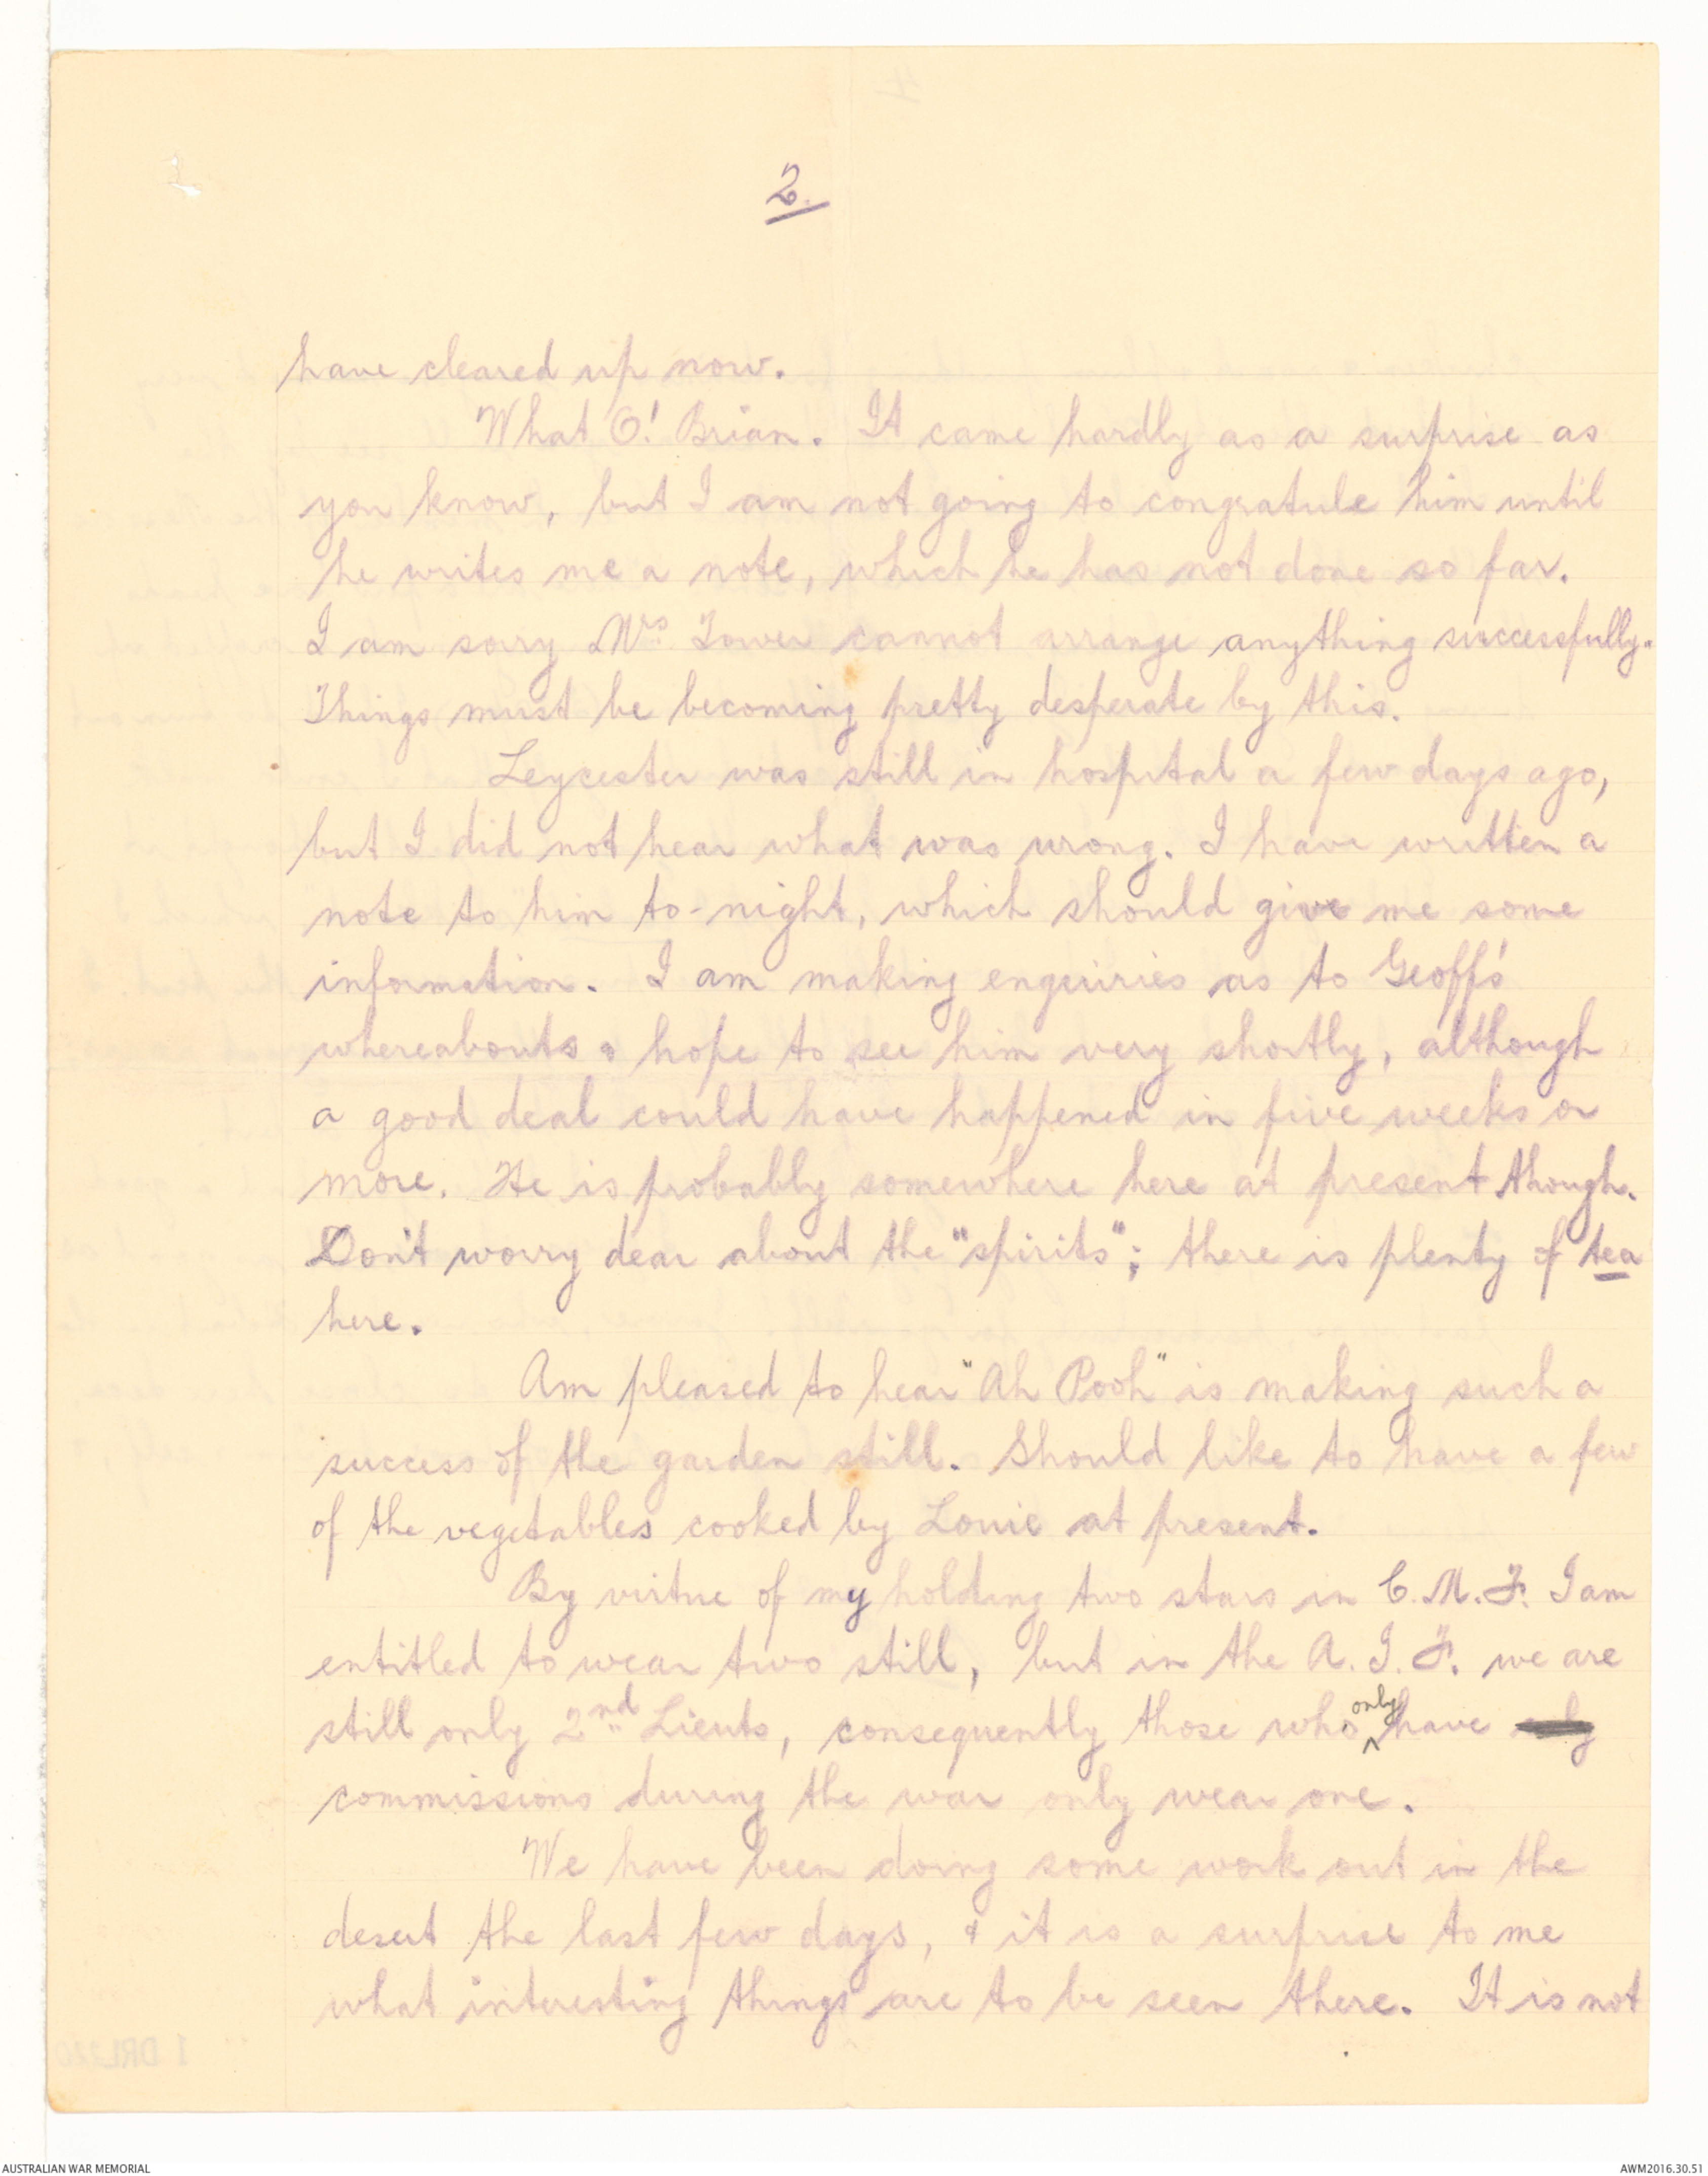 2.
have cleared up now.
What O! Brian. It came hardly as a surprise as
you know, but I am not going to congratule him until
he writes me a note, which he has not done so far.
I am sorry Mrs. Tower cannot arrange anything successfully.
Things must be becoming pretty desperate by this.
Leycester was still in hospital a few days ago,
but I did not hear what was wrong. I have written a
note to him to-night, which should give me some
information. I am making enquiries as to Geoff's
whereabouts & hope to see him very shortly, although
a good deal could have happened in five weeks or
more. He is probably somewhere here at present though.
Don't worry dear about the "spirits"; there is plenty of tea
here.
Am pleased to hear "Ah Pooh" is making such a
success of the garden still. Should like to have a few
of the vegetables cooked by Louie at present.
By virtue of my holding two stars in C.M.F. I am
entitled to wear two still, but in the A.I.F. we are
still only 2nd Lieuts, consequently those who only have
commissions during the war only wear one.
We have been doing some work out in the
desert the last few days, & it is a surprise to me
what interesting things are to be seen there. It is not
1 DRL
AUSTRALIAN WAR MEMORIAL
AWM2016.30.51